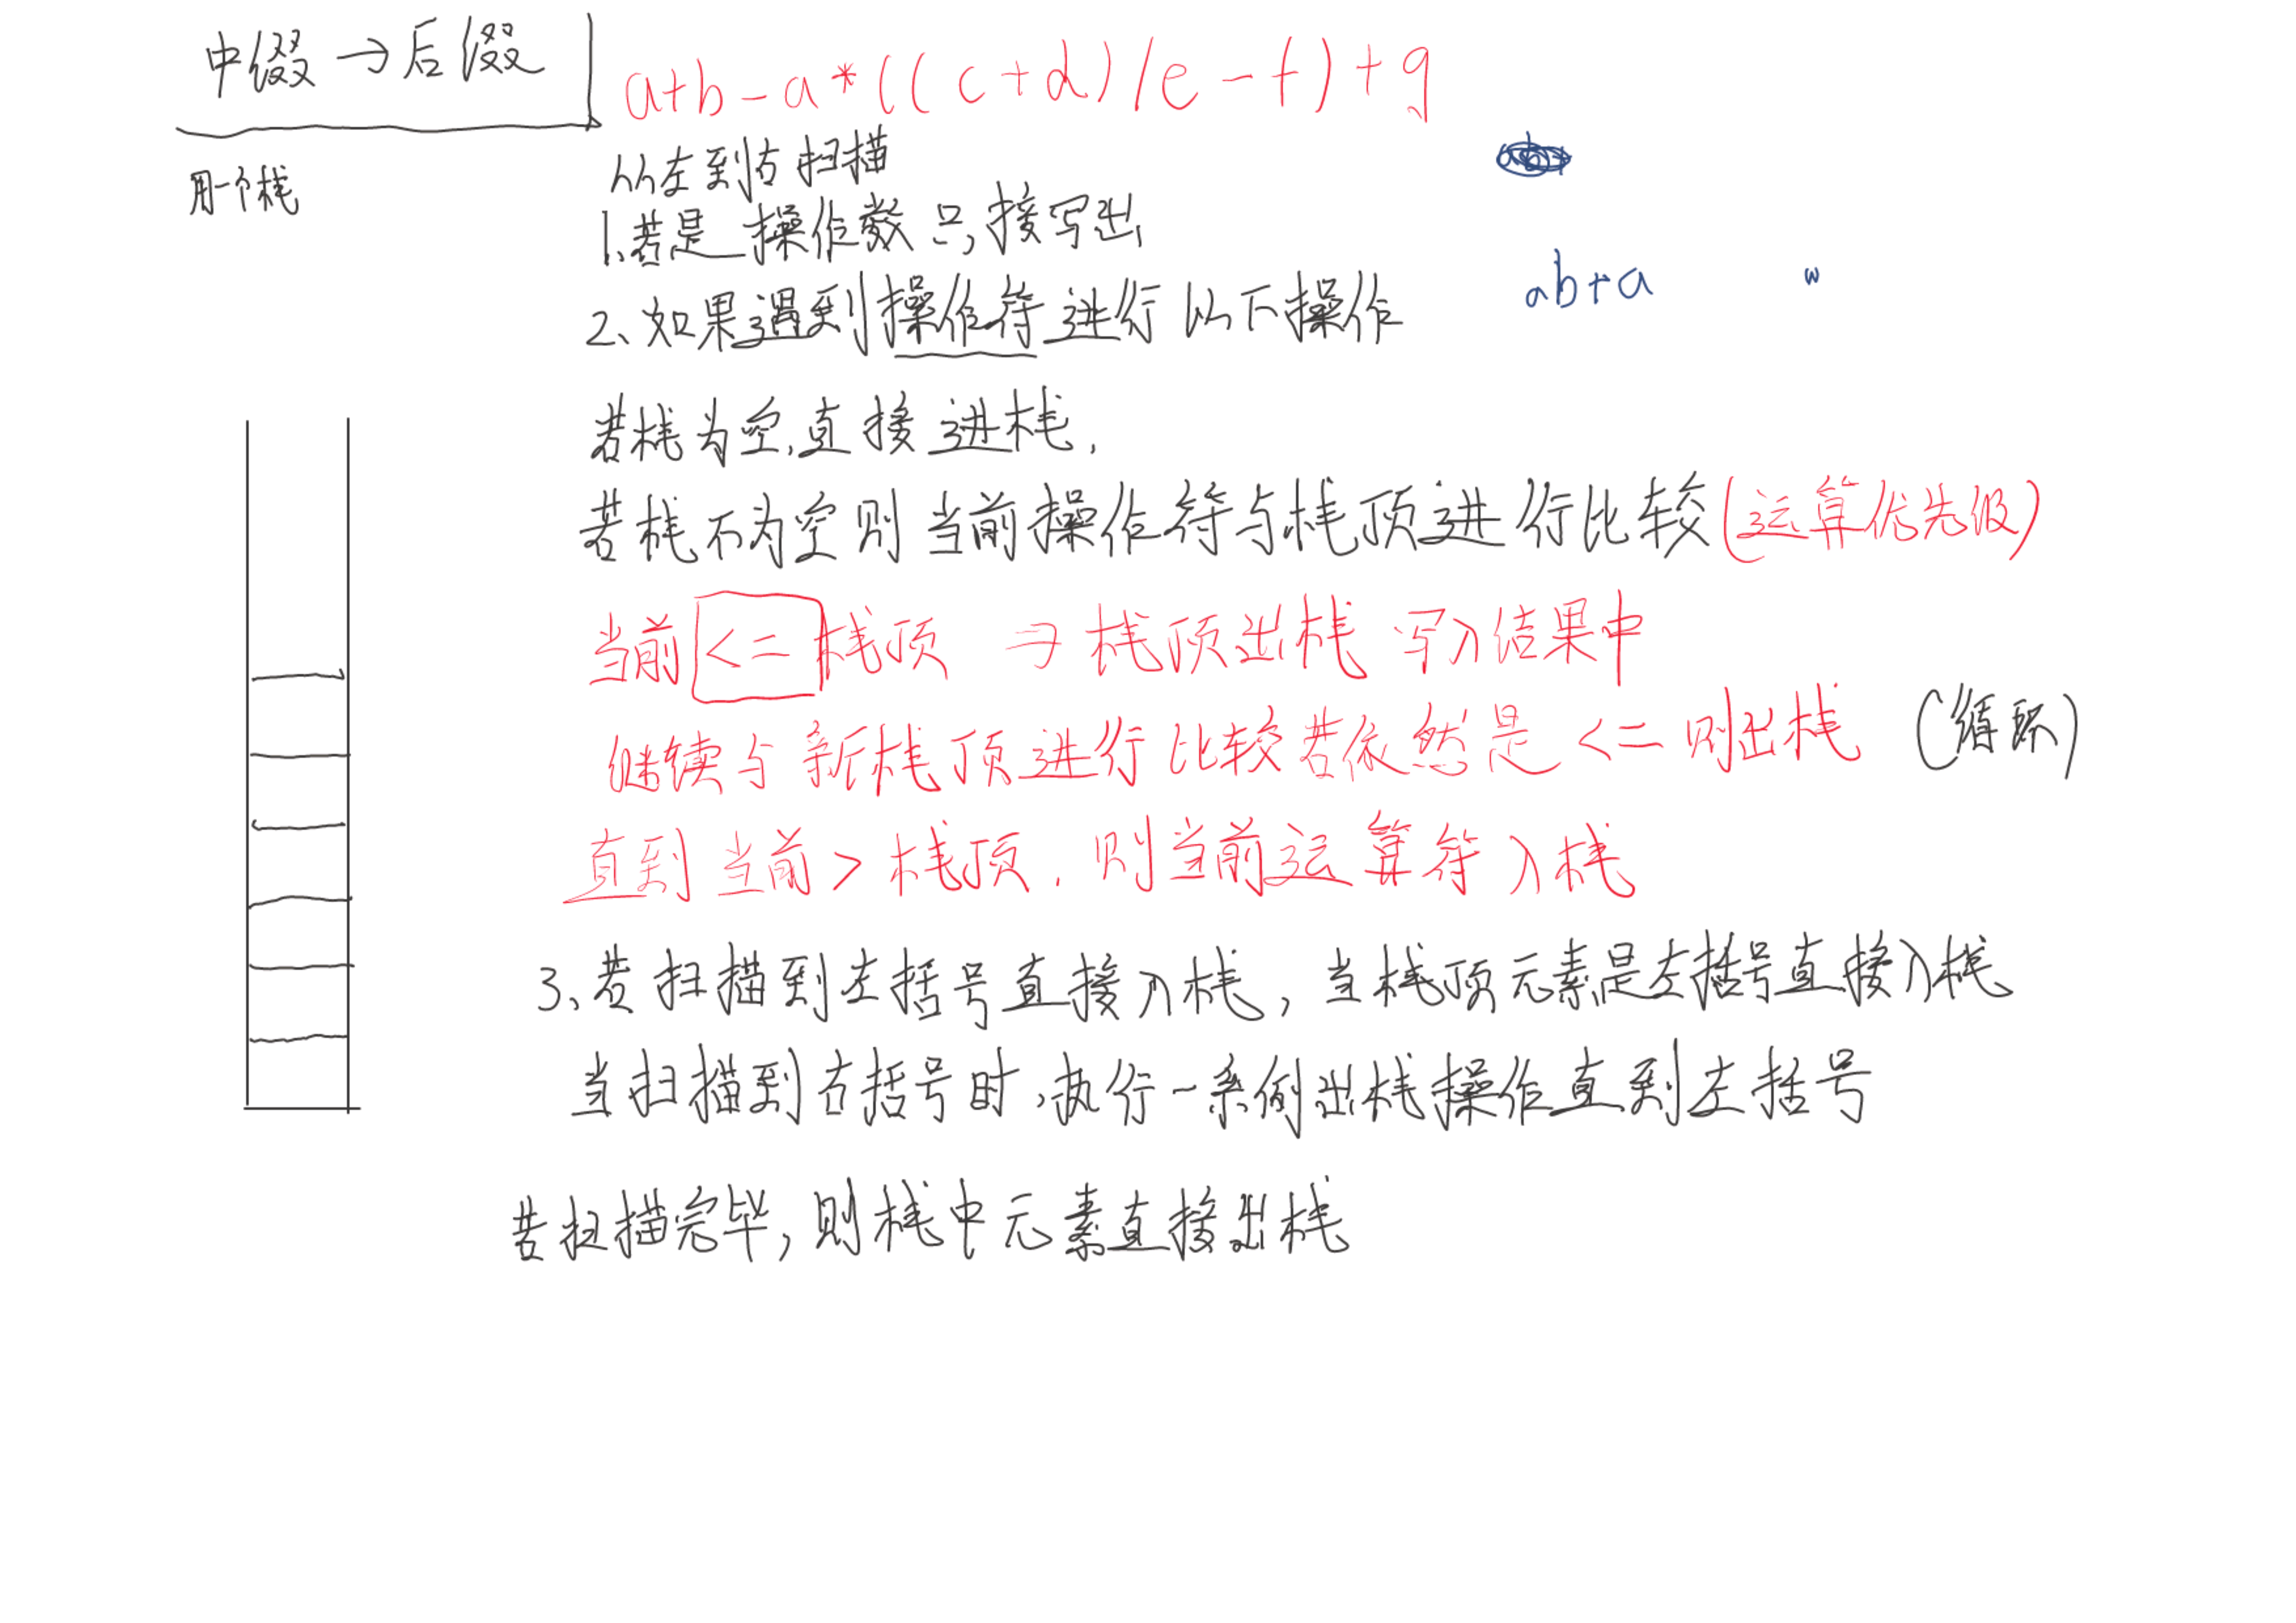 中缀→后缀
a+b-a*((c+d)/e-f)+g
用一个栈
从左到右扫描
1、若是操作数直接写出
2、如果遇到操作符进行以下操作
ab+a
若栈为空,直接进栈.
若栈不为空则当前操作符与栈顶进行比较(运算优先级)
当前<=栈顶 → 栈顶出栈 写入结果中
继续与新栈顶进行比较若依然是<=则出栈 (循环)
直到当前>栈顶.则当前运算符入栈
3、若扫描到左括号直接入栈,当栈顶元素是左括号直接入栈
当扫描到右括号时,执行一系例出栈操作直到左括号
若扫描完毕,则栈中元素直接出栈